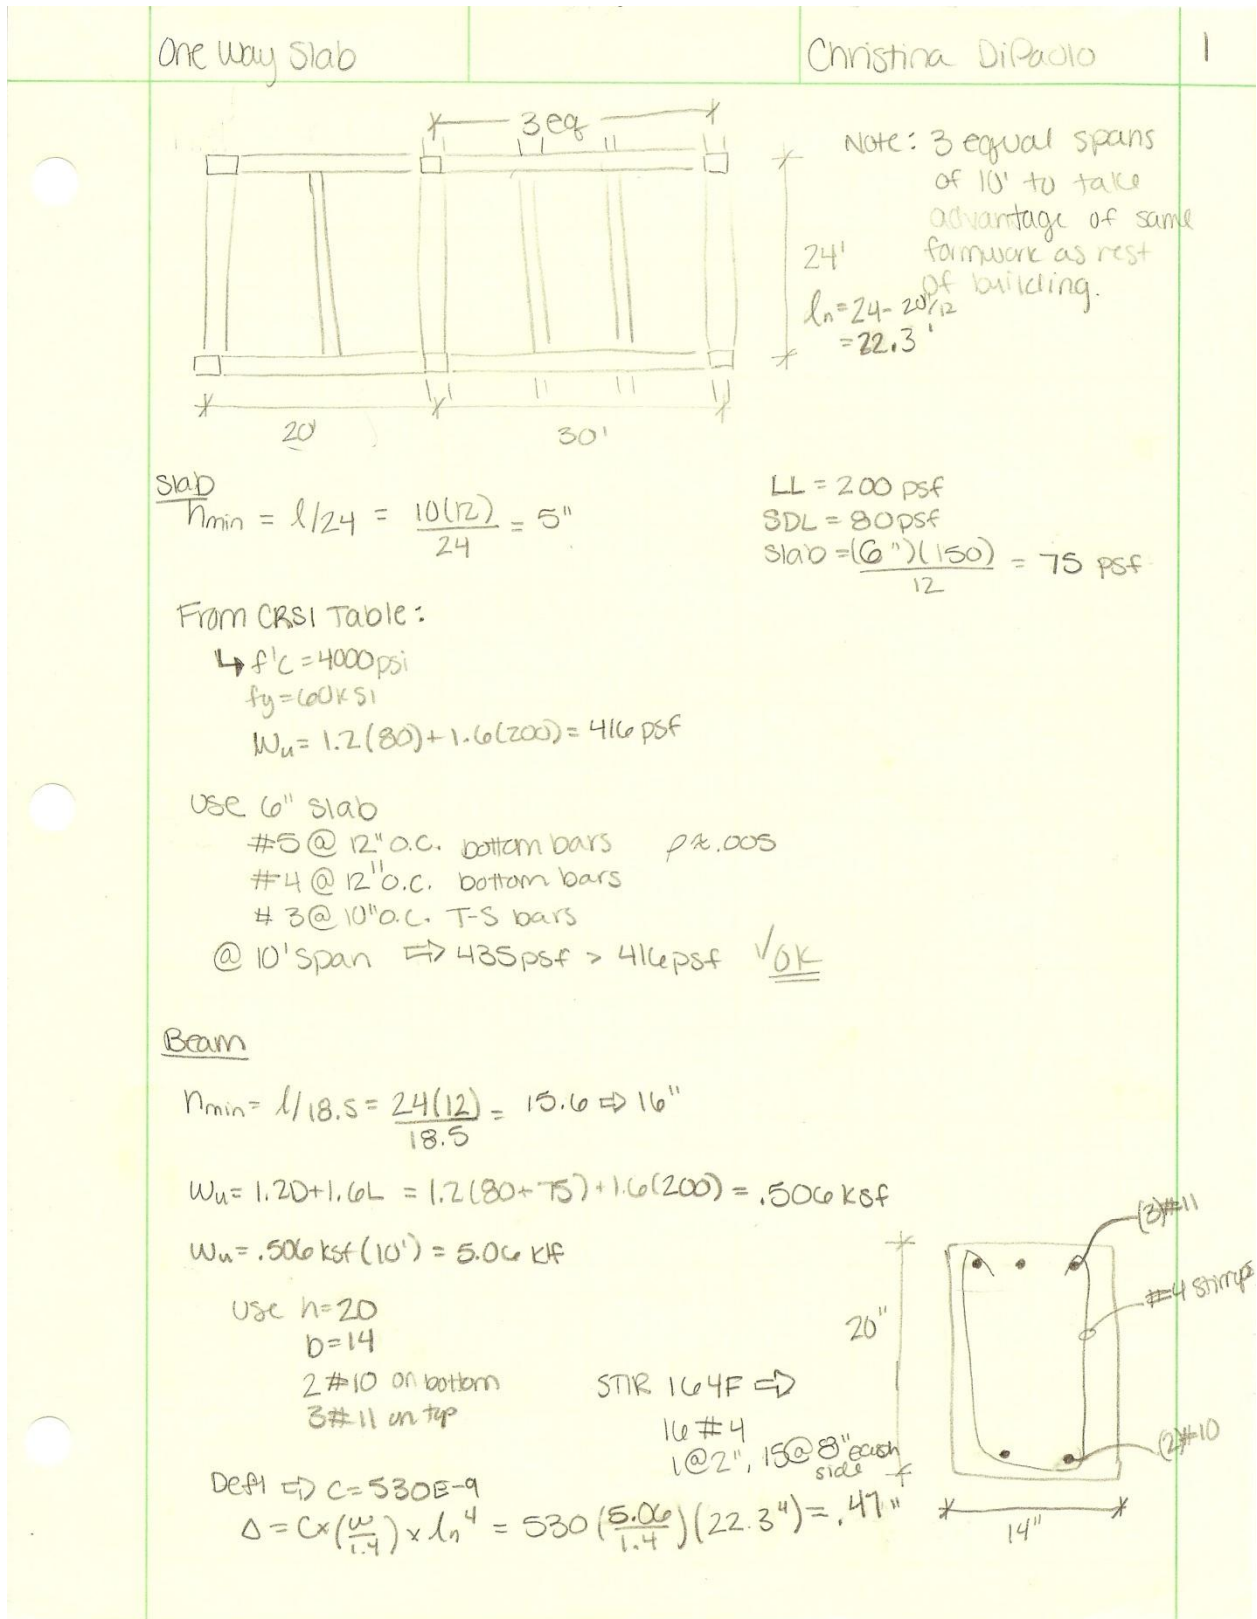 One Way Slab
Christina DiPaolo
1
3 eq
Note: 3 equal spans
of 10' to take
advantage of same
formwork as rest
of building.
24'
ln = 24 - 20"/12
= 22.3'
20'
30'
Slab
hmin = l/24 = 10(12)/24 = 5"
LL = 200 psf
SDL = 80psf
slab = (6")(150)/12 = 75 psf
From CRSI Table:
↳ f'c = 4000psi
fy = 60KSI
Wu = 1.2(80) + 1.6(200) = 416 psf
USE 6" slab
#5 @ 12" O.C. bottom bars ρ≈.005
#4 @ 12" O.C. bottom bars
#3 @ 10" O.C. T-S bars
@ 10' span ⇒ 435psf > 416psf √OK
Beam
hmin = l/18.5 = 24(12)/18.5 = 15.6 ⇒ 16"
Wu = 1.2D + 1.6L = 1.2(80+75) + 1.6(200) = .506 ksf
Wu = .506 ksf (10') = 5.06 klf
Use h=20
b=14
2#10 on bottom
3#11 on top
STIR 164F ⇒
16 #4
1@2", 15@8" each
side
Defl ⇒ C = 530E-9
Δ = C×(w/1.4)×ln^4 = 530 (5.06/1.4)(22.3^4) = .47"
(3)#11
#4 stirrups
20"
(2)#10
14"